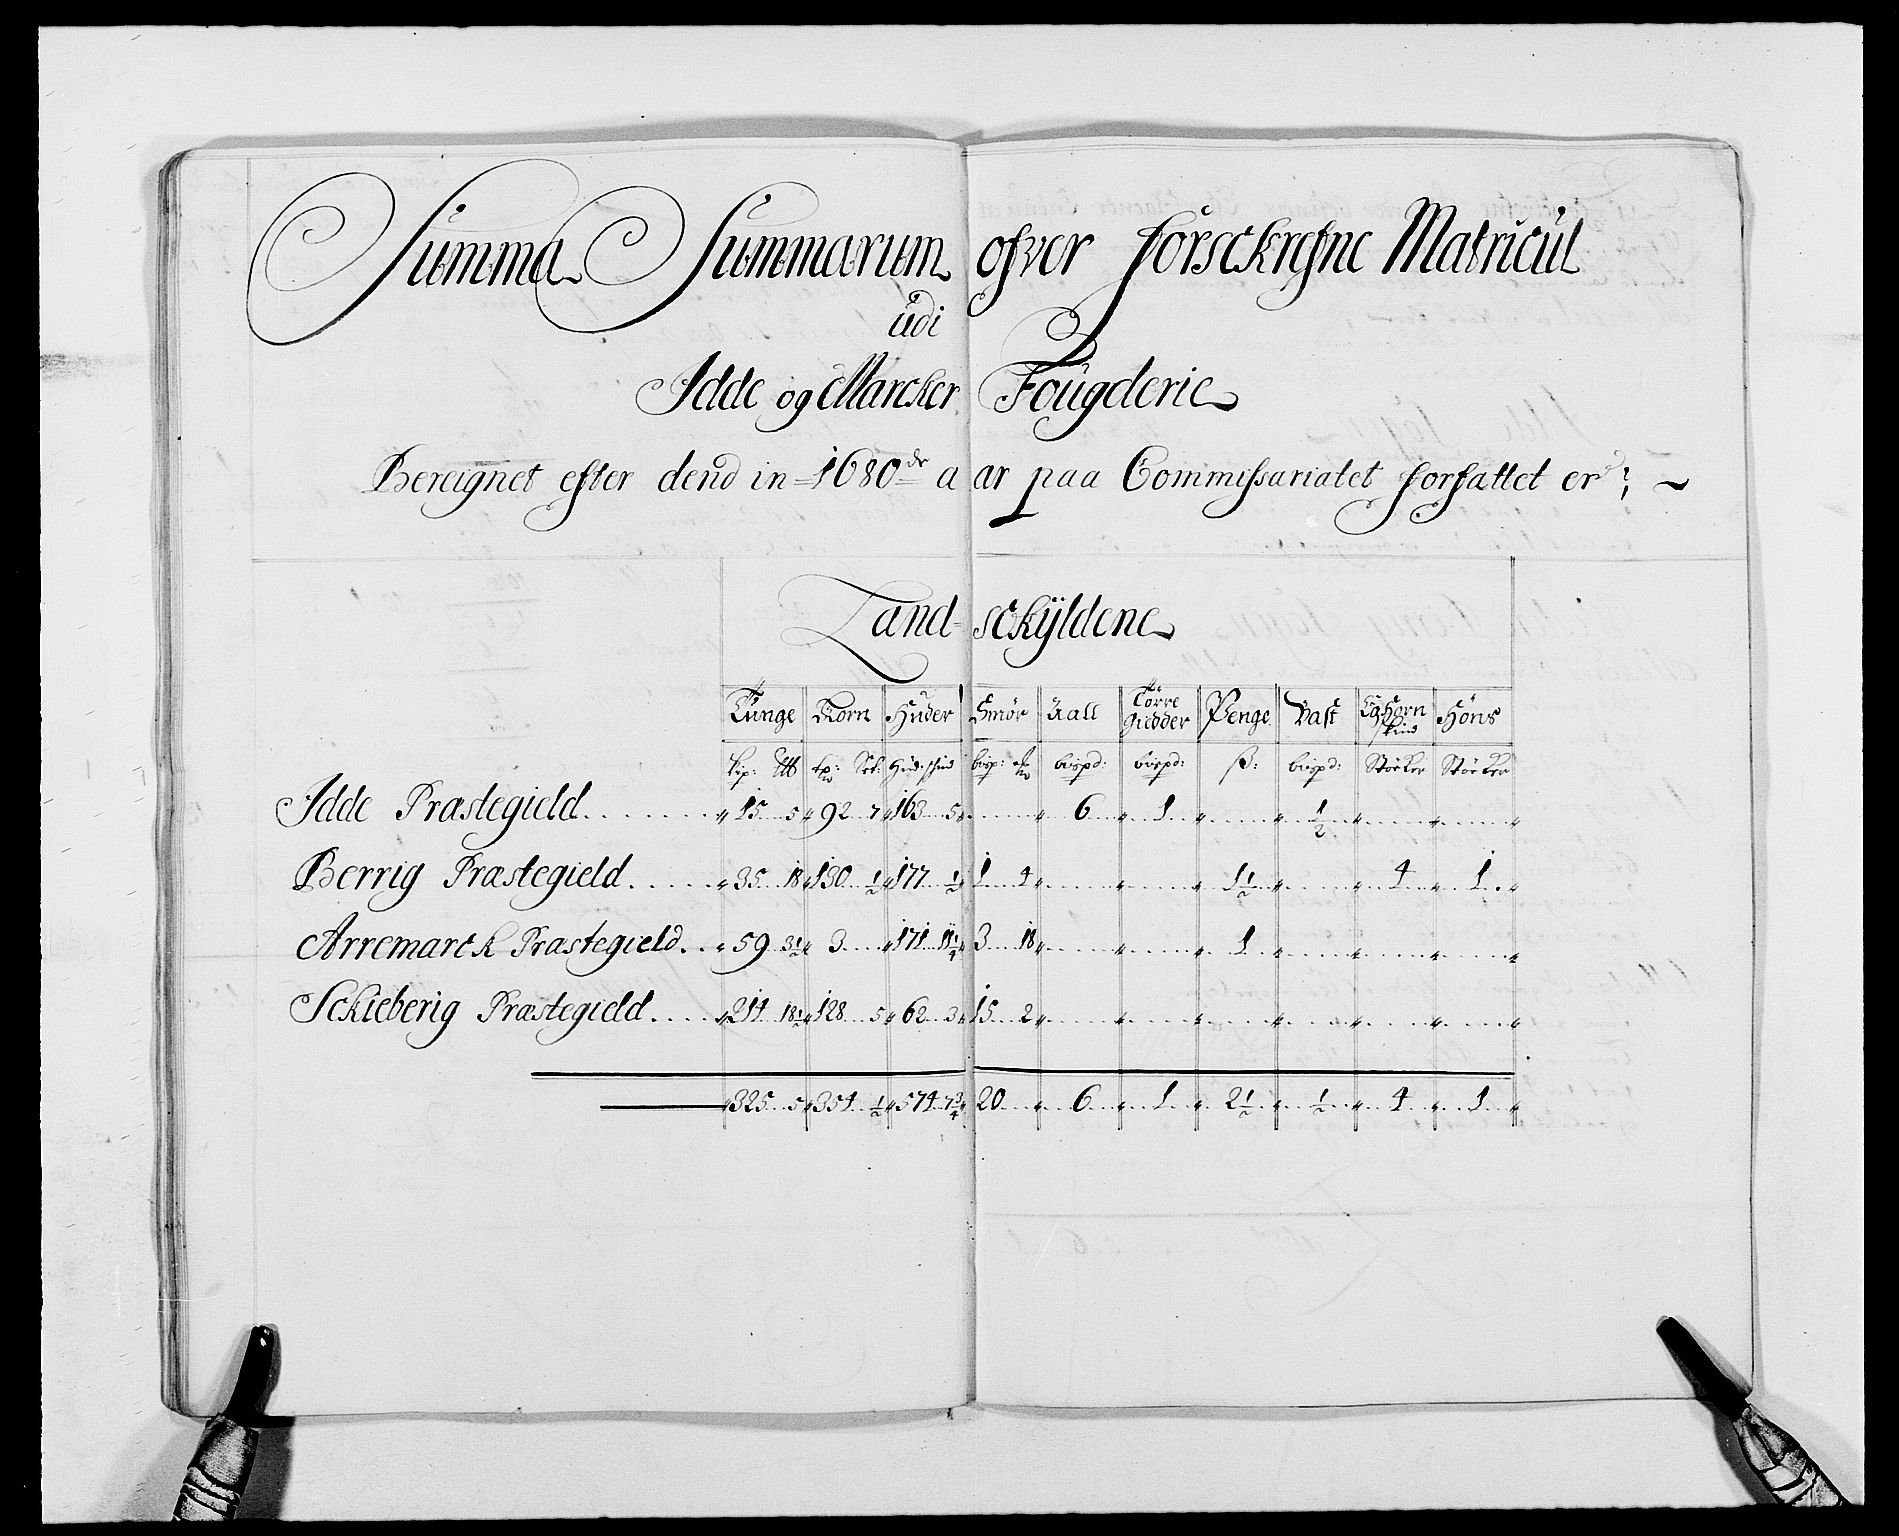 Summa Summarum ofver forsckrefne Matricul
udi
Idde og Marcker Fougderie
Bereignet efter dend in 1680de aar paa Commissariatet forfattet er;
Landsckÿldene
Tunge Korn Huder Smör Aall Törre Giedder Penge Vast Höns
bispd: bispd: ß: bispd: Stöcker Stöcker
Idde Præstegield 15 5 92 7 163 5 6 1 1/2
Berrig Præstegield 35 18 130 1/2 177 1/2 1 4 1 1/2 4 1
Arremarck Præstegield 59 3 1/2 3 171 11 1/4 3 18 1
Sckieberig Præstegield 214 18 1/2 128 5 62 3 15 2
325 5 354 1/2 574 7 3/4 20 6 1 2 1/2 1/2 4 1